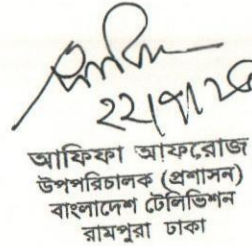 আফিফা আফরোজ
উপপরিচালক (প্রশাসন)
বাংলাদেশ টেলিভিশন
রামপুরা ঢাকা